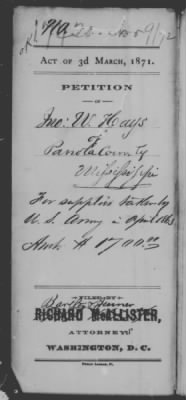 ACT OF 3D MARCH, 1871.
PETITION
OF
Jno: W. Hays
of
Panola County
Mississippi
For supplies taken by
U. S. Army in April 1863
Amt. $ 1700.00
FILED BY
RICHARD McALLISTER,
ATTORNEY
WASHINGTON, D. C.